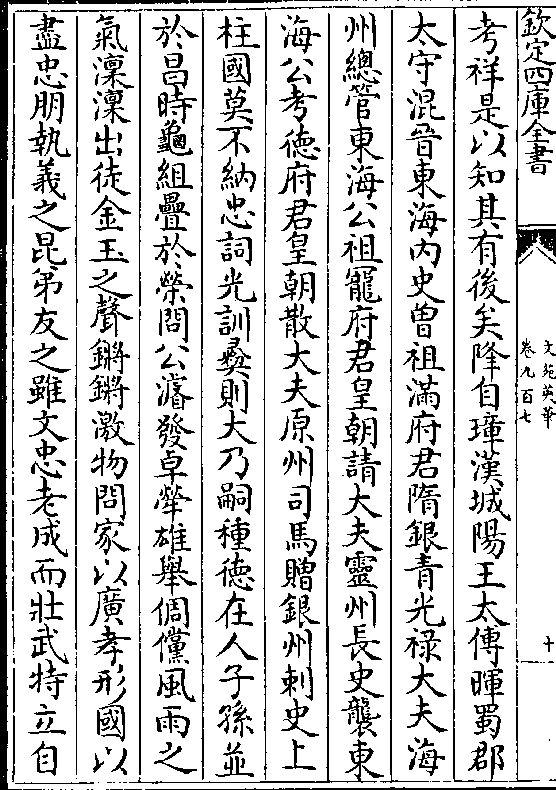 欽定四庫全書
文苑英華
卷九百七
十
考祥是以知其有後矣降自璋漢城陽王太傅暉蜀郡
太守混晉東海内史曾祖滿府君隋銀青光祿大夫海
州總管東海公祖寵府君皇朝請大夫靈州長史襲東
海公考德府君皇朝散大夫原州司馬贈銀州刺史上
柱國莫不納忠詞光訓彛則大乃嗣種德在人子孫並
於昌時龜組疊於榮問公濬發卓犖雄舉倜儻風雨之
氣凜凜出徒金玉之聲鏘鏘激物問家以廣孝形國以
盡忠朋執義之昆弟友之雖文忠老成而壯武特立自